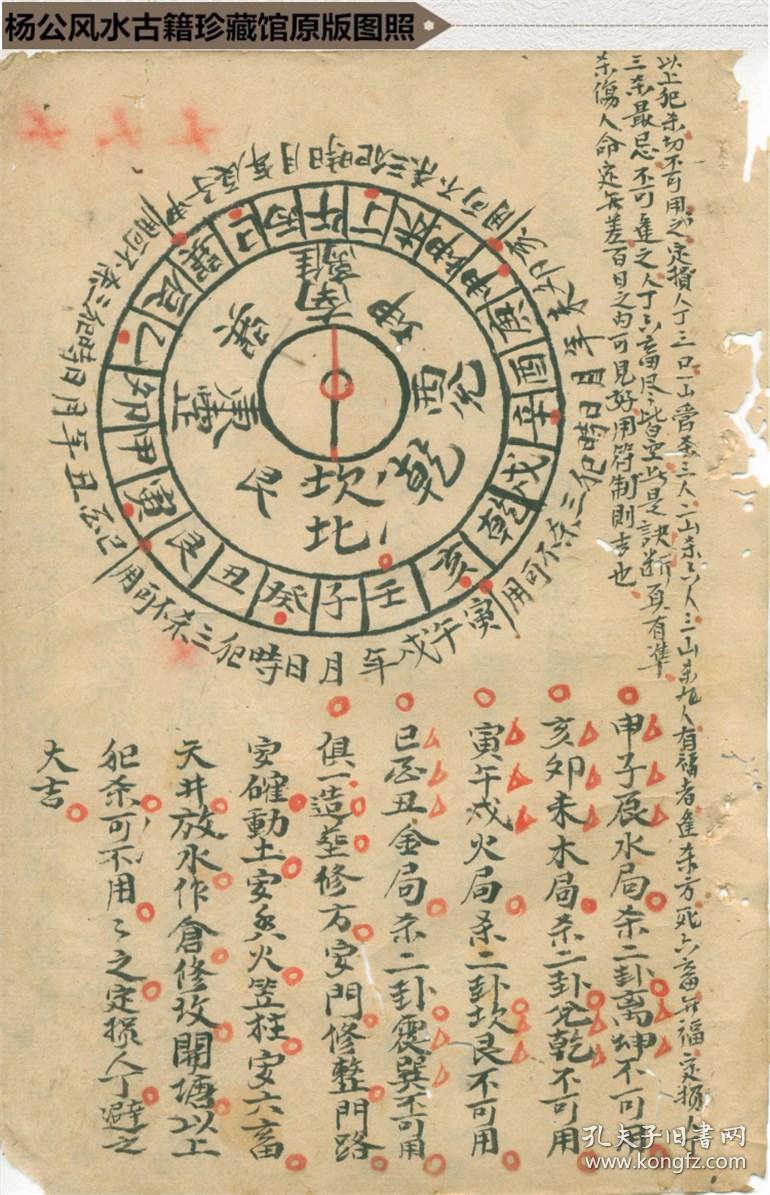 杨公风水古籍珍藏馆原版图照
以上犯杀切不可用之定損人丁三口一山管杀三人二山杀六人三山杀九人有福者逢杀方死六畜無福定損人丁
三杀最忌不可逢之人丁六畜尽皆空此是訣断真有準
杀傷人命定無差百日之内可見好用符制則吉也
申子辰年月日時犯三杀不可用
亥卯未年月日時犯三杀不可用
寅午戌年月日時犯三杀不可用
巳酉丑年月日時犯三杀不可用
壬子癸丑艮寅甲卯乙辰巽巳丙午丁未坤申庚酉辛戌乾亥
離南
坤
兌西
乾
坎北
艮
震東
巽
申子辰水局杀二卦离坤不可用
亥卯未木局杀二卦兌乾不可用
寅午戌火局杀二卦坎艮不可用
巳酉丑金局杀二卦震巽不可用
俱一造塟修方安門修整門路
安碓動土安香火竪柱安六畜
天井放水作倉修改開塘以上
犯杀可不用〻之定損人丁避之
大吉
孔夫子旧书网
www.kongfz.com